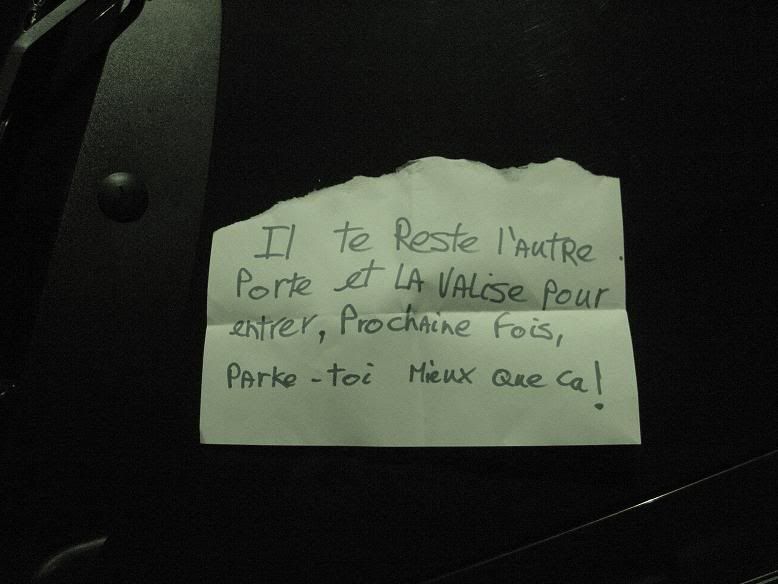 Il te Reste l'AUTRe
Porte et LA VALise pour
entrer, Prochaine Fois,
PArke-toi Mieux Que ca!